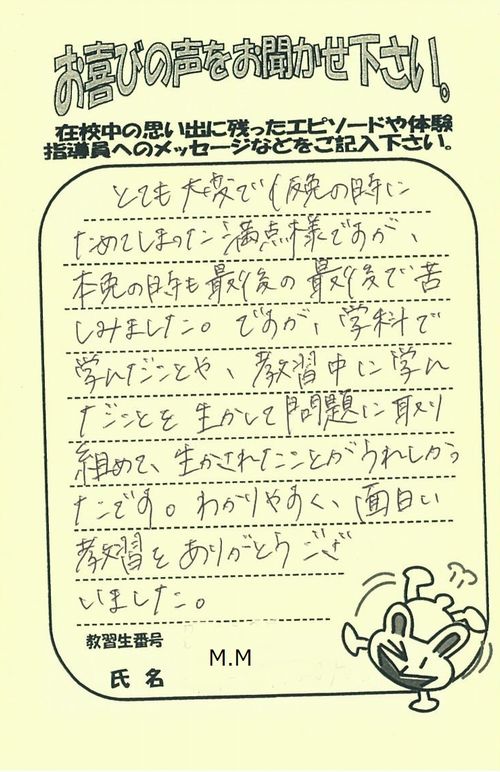 お喜びの声をお聞かせ下さい。
在校中の思い出に残ったエピソードや体験
指導員へのメッセージなどをご記入下さい。
とても大変で仮免の時に
ためてしまった満点様ですが、
本免の時も最後の最後で苦
しみました。ですが、学科で
学んだことや、教習中に学ん
だことを生かして問題に取り
組めて、生かされたことがうれしかっ
たです。わかりやすく、面白い
教習をありがとうござ
いました。
教習生番号
M.M
氏名